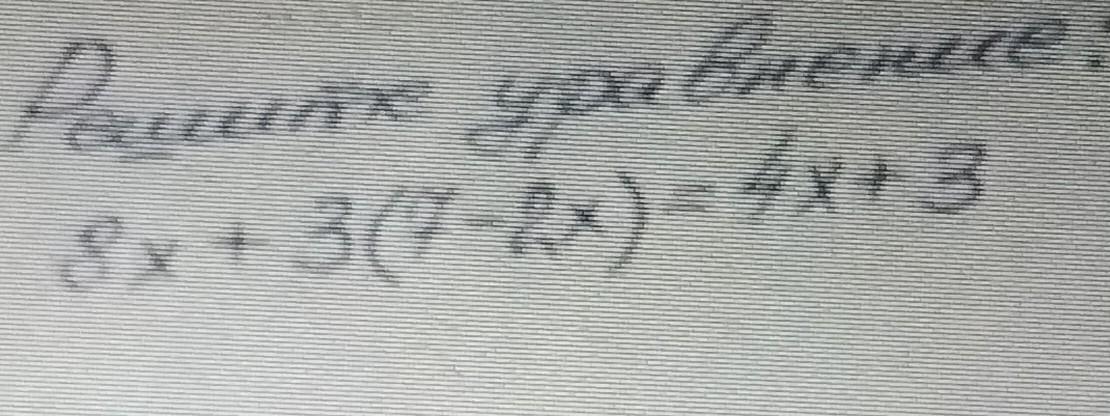 Решите уравнение:
8x + 3(7 - 2x) = 4x + 3